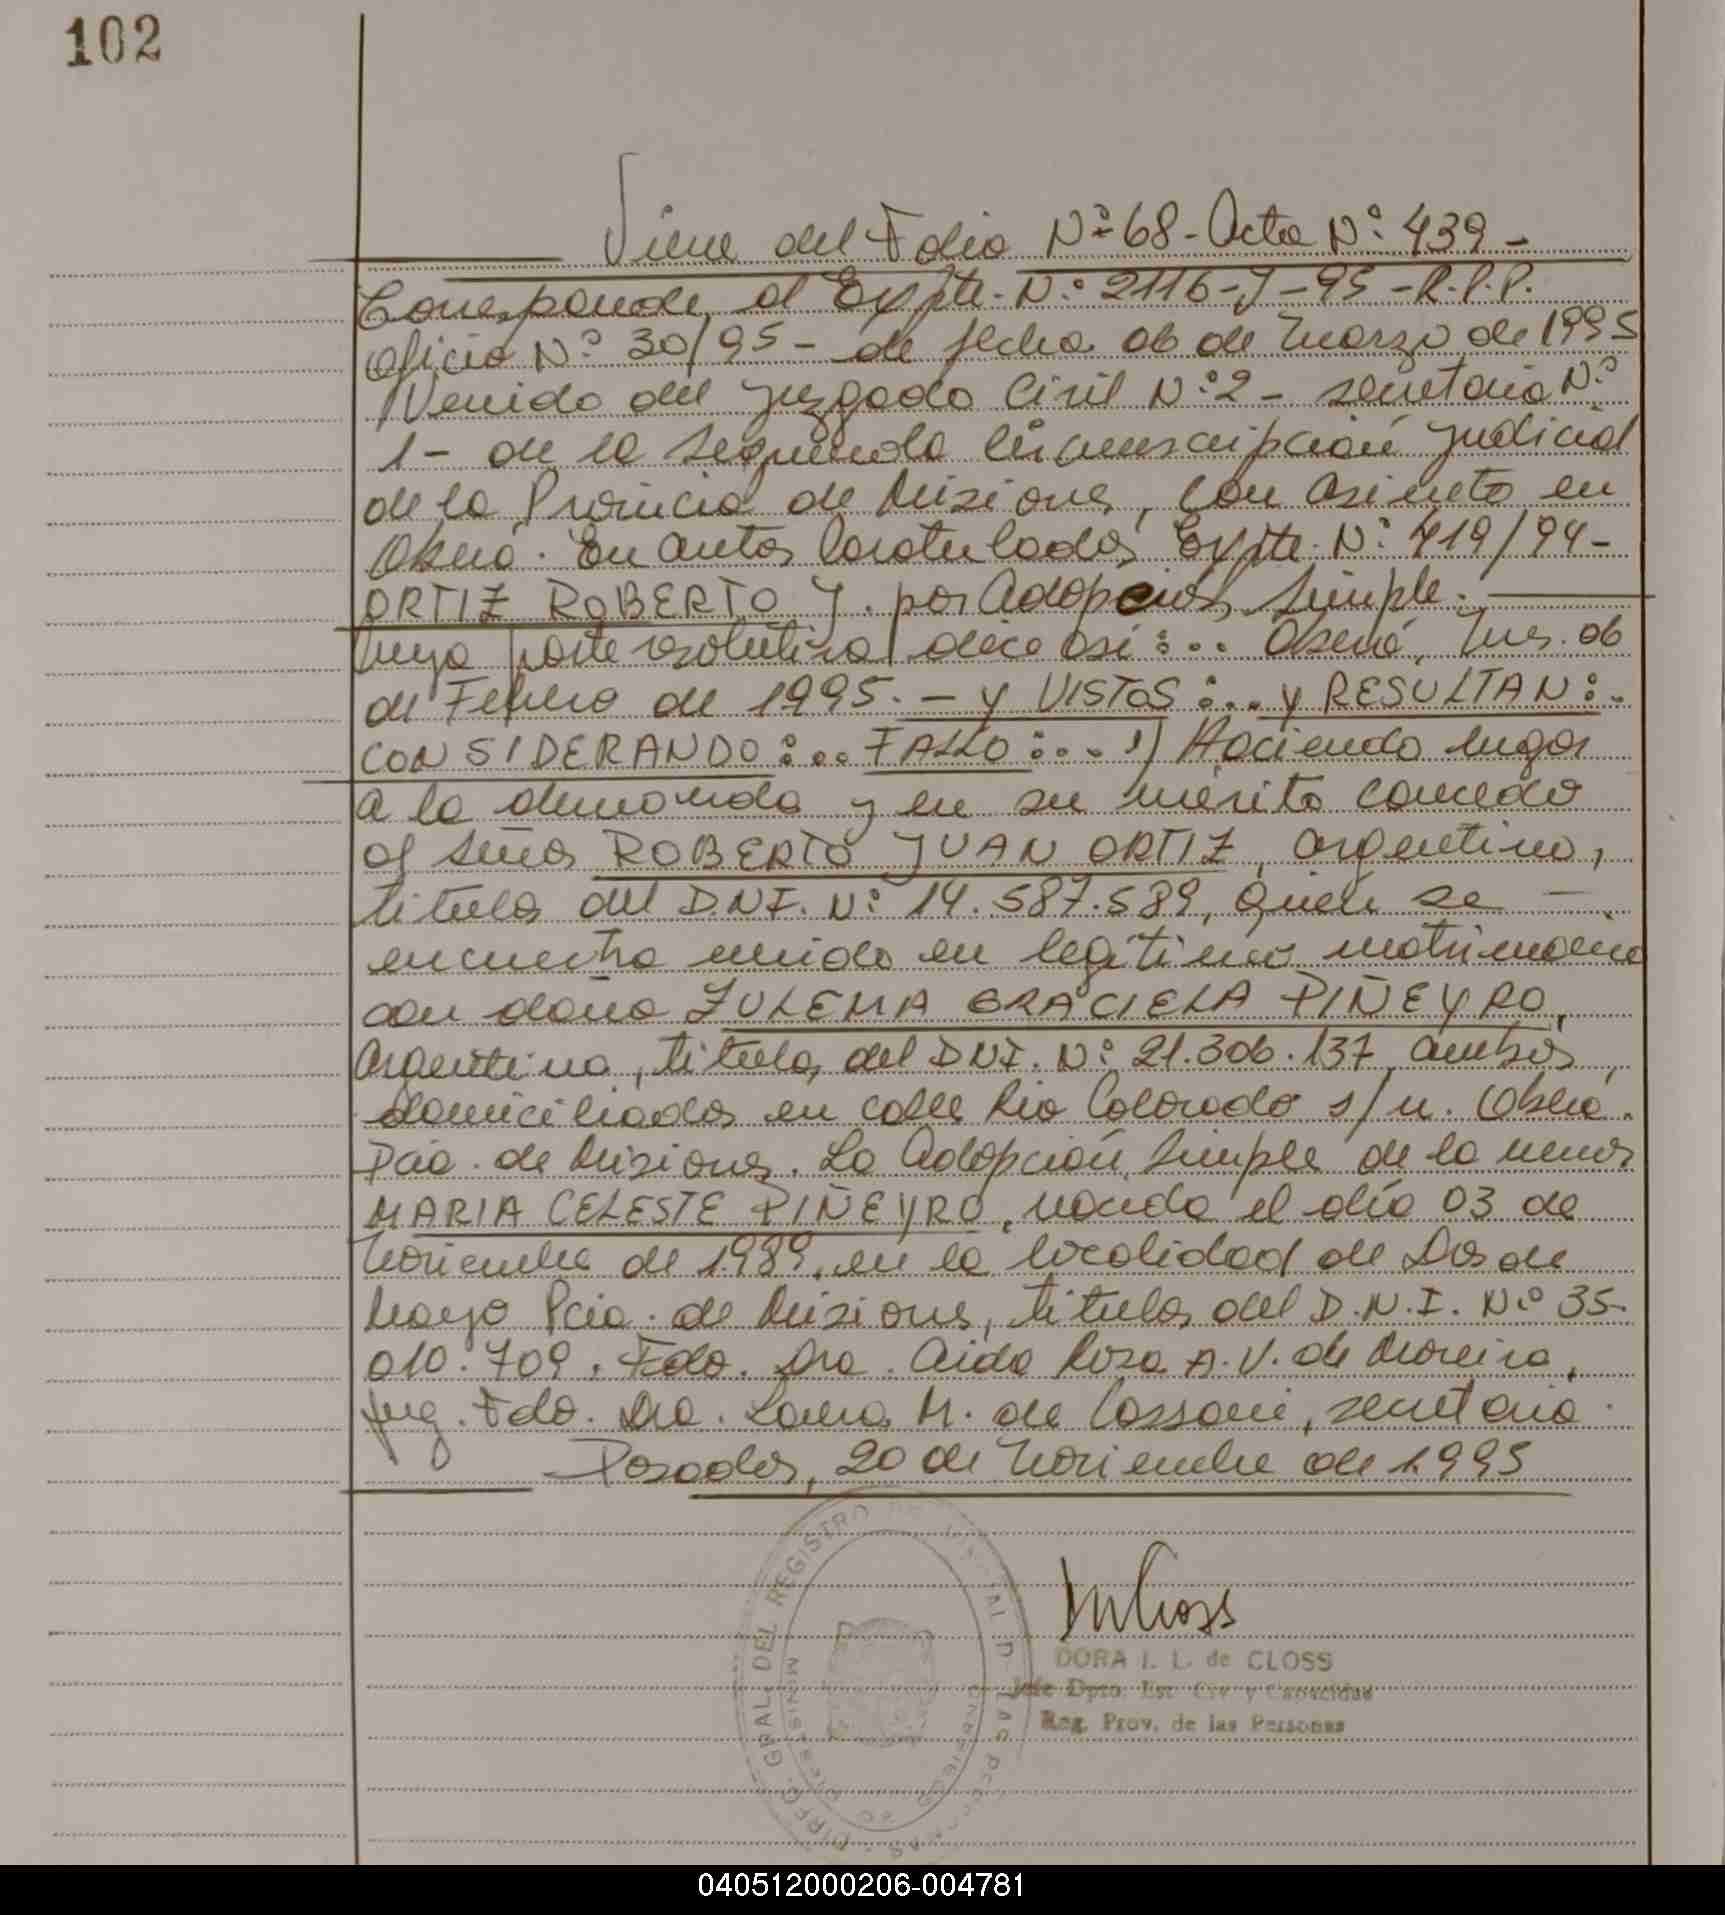 102
Viene del Folio Nº 68 - Acta Nº: 439 -
Corresponde al Expte. Nº: 2116-J-95-R.P.P.
oficio Nº 30/95 - de fecha 06 de Marzo de 1995
Venido del Juzgado Civil Nº: 2 - secretaria Nº:
1 - de la Segunda Circunscripción Judicial
de la Provincia de Misiones, con asiento en
Oberá. En autos Caratulados Expte. Nº: 419/94 -
ORTIZ ROBERTO J. por Adopción Simple. -
Cuya parte resolutiva dice así:... Oberá, Mes. 06
de Febrero de 1995. - y VISTOS:.. y RESULTAN:.
CONSIDERANDO:... FALLO:... 1) Haciendo lugar
a la demanda y en su mérito concedo
al señor ROBERTO JUAN ORTIZ, argentino,
titular del D.N.I. Nº: 14.587.589, quien se -
encuentra unido en legítimo matrimonio
con doña ZULEMA GRACIELA PIÑEYRO,
argentina, titular del DNI. Nº: 21.306.137, ambos
domiciliados en calle Rio Colorado s/n. Oberá.
Pcia. de Misiones. La Adopción Simple de la menor
MARIA CELESTE PIÑEYRO, nacida el día 03 de
Noviembre de 1.989, en la localidad de Dos de
Mayo Pcia. de Misiones, titular del D.N.I. Nº 35.
010.709. Fdo. Dra. Aida Rosa A. V. de Moreira,
Juez. Fdo. Dra. Laura M. de Cassoni, secretaria.
Posadas, 20 de Noviembre de 1.995
DIREC. GRAL. DEL REGISTRO PROVINCIAL DE LAS PERSONAS
MINISTERIO DE GOBIERNO
DORA I. L. de CLOSS
Jefe Dpto. Est. Civ. y Capacidad
Reg. Prov. de las Personas
040512000206-004781